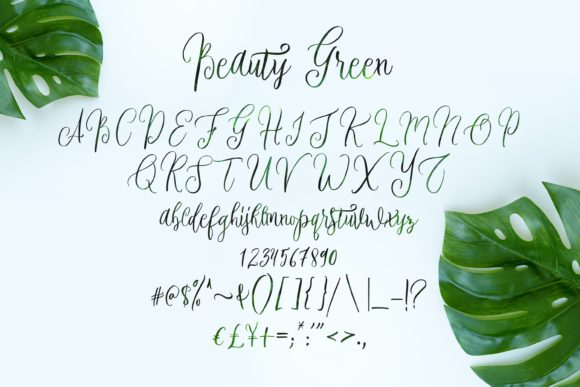 Beauty Green
A B C D E F G H I J K L M N O P
Q R S T U V W X Y Z
abcdefghijklmnopqrstuvwxyz
1234567890
#@$%^~&()[]{}/\|_-!?
€£¥+=;*:'"<>.,